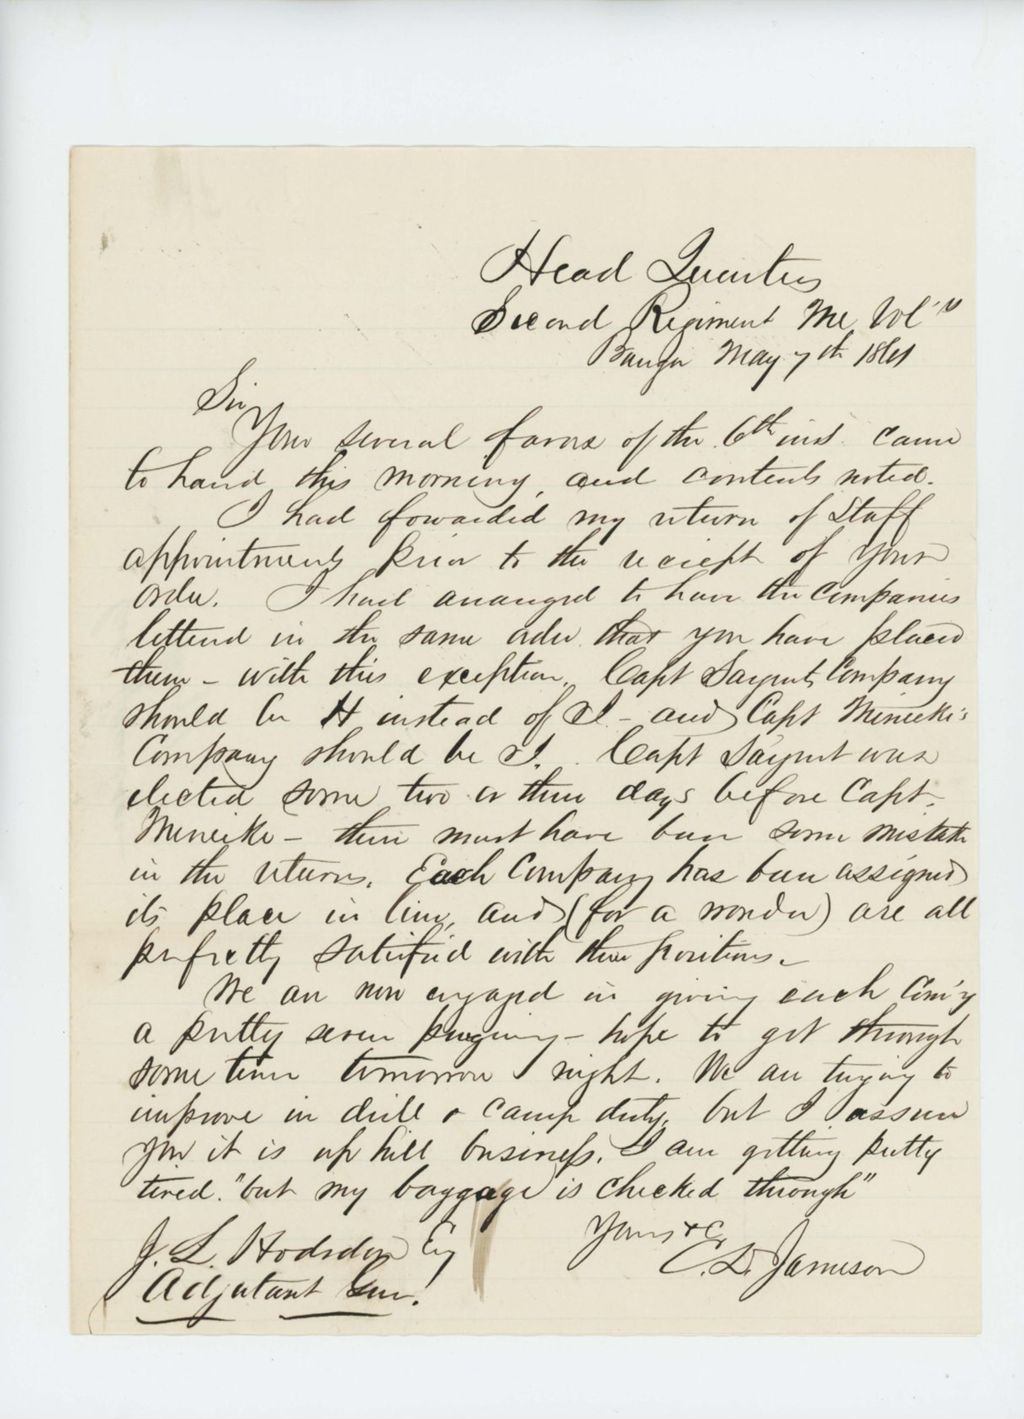 Head Quarters
Second Regiment Me Vol's
Bangor May 7th 1861
Sir
Your several favors of the 6th inst. came
to hand this morning, and contents noted.
I had fowarded my return of Staff
appointments prior to the reciept of Your
order. I had arranged to have the Companies
lettend in the same order that you have placed
them - with this exception. Capt Sargents Company
should be H instead of I - and Capt Meinicke's
Company should be I. Capt Sargent was
elected some two or three days before Capt.
Meineike - there must have been some mistake
in the returns. Each Company has been assigned
its place in line, and (for a wonder) are all
perfectly satisfied with there positions. -
We are now engaged in giving each Com'y
a pretty severe purging - hope to get through
some time tomorrow night. We are trying to
improve in drill & camp duty, but I assure
you it is up hill business. I am getting pretty
tired. "but my baggage is checked through"
Yours &c,
J. L. Hodsdon Esq
C. D. Jameson
Adjutant Gen.